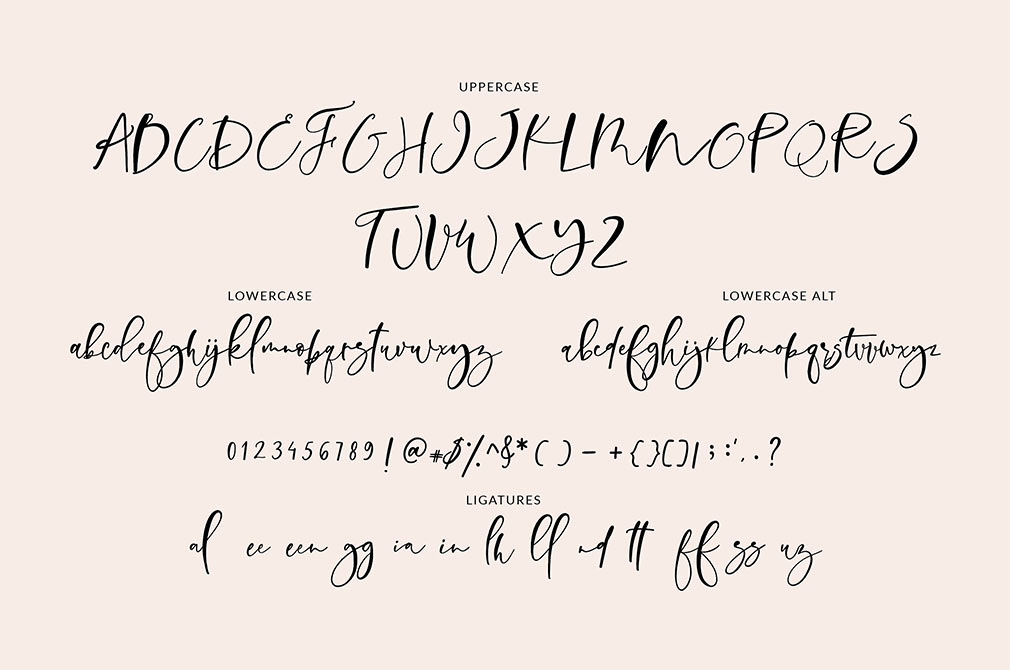 UPPERCASE
ABCDEFGHIJKLMNOPQRS
TUVWXYZ
LOWERCASE
LOWERCASE ALT
abcdefghijklmnopqrstuvwxyz
abcdefghijklmnopqrstuvwxyz
0123456789!@#$%^&*()-+{}[]|;:',.?
LIGATURES
al ee een gg ia in lh ll nd tt ff ss uz